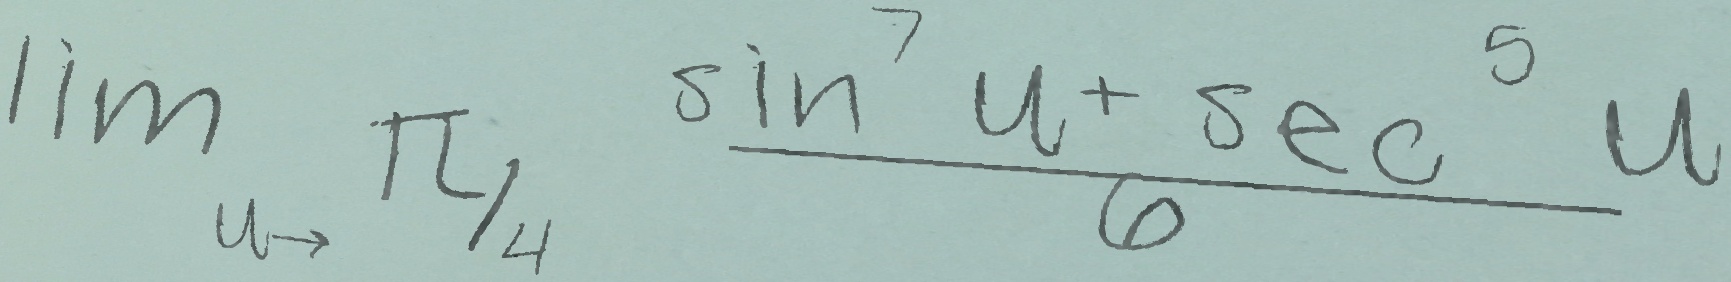 \lim_{u \to \pi/4} \frac{\sin^7 u + \sec^5 u}{6}